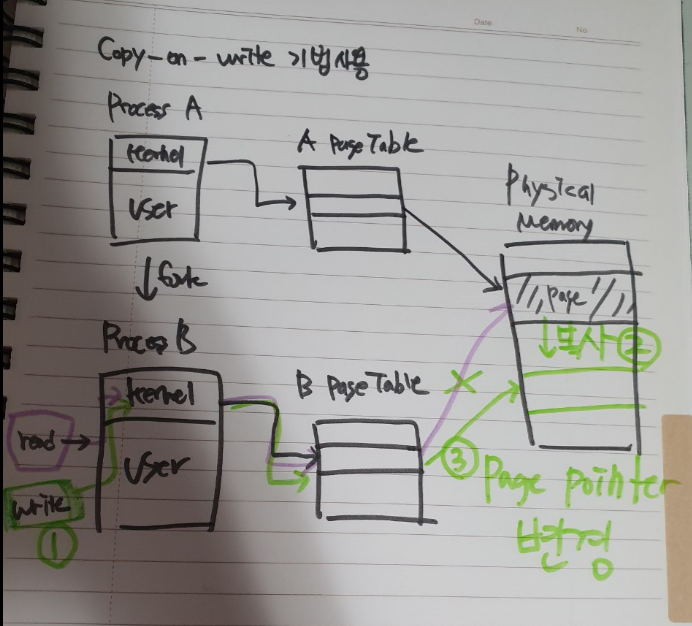 Date
No.
Copy-on-write 기법사용
Process A
kernel
User
A Page Table
Physical
Memory
page
↓ fork
↓복사 ②
Process B
kernel
User
B Page Table
X
read →
write
①
③ Page pointer
변경